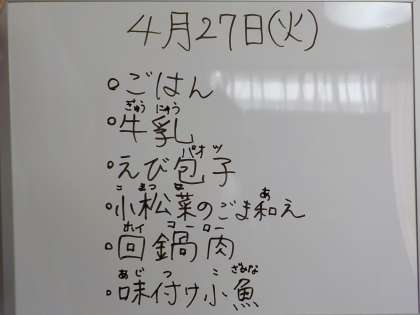 4月27日(火)
○ごはん
ぎゅう にゅう
○牛乳
パオ ツ
・えび包子
こ まつ な あ
○小松菜のごま和え
ホイ コー ロー
○回鍋肉
あじ つ こ ざかな
・味付け小魚